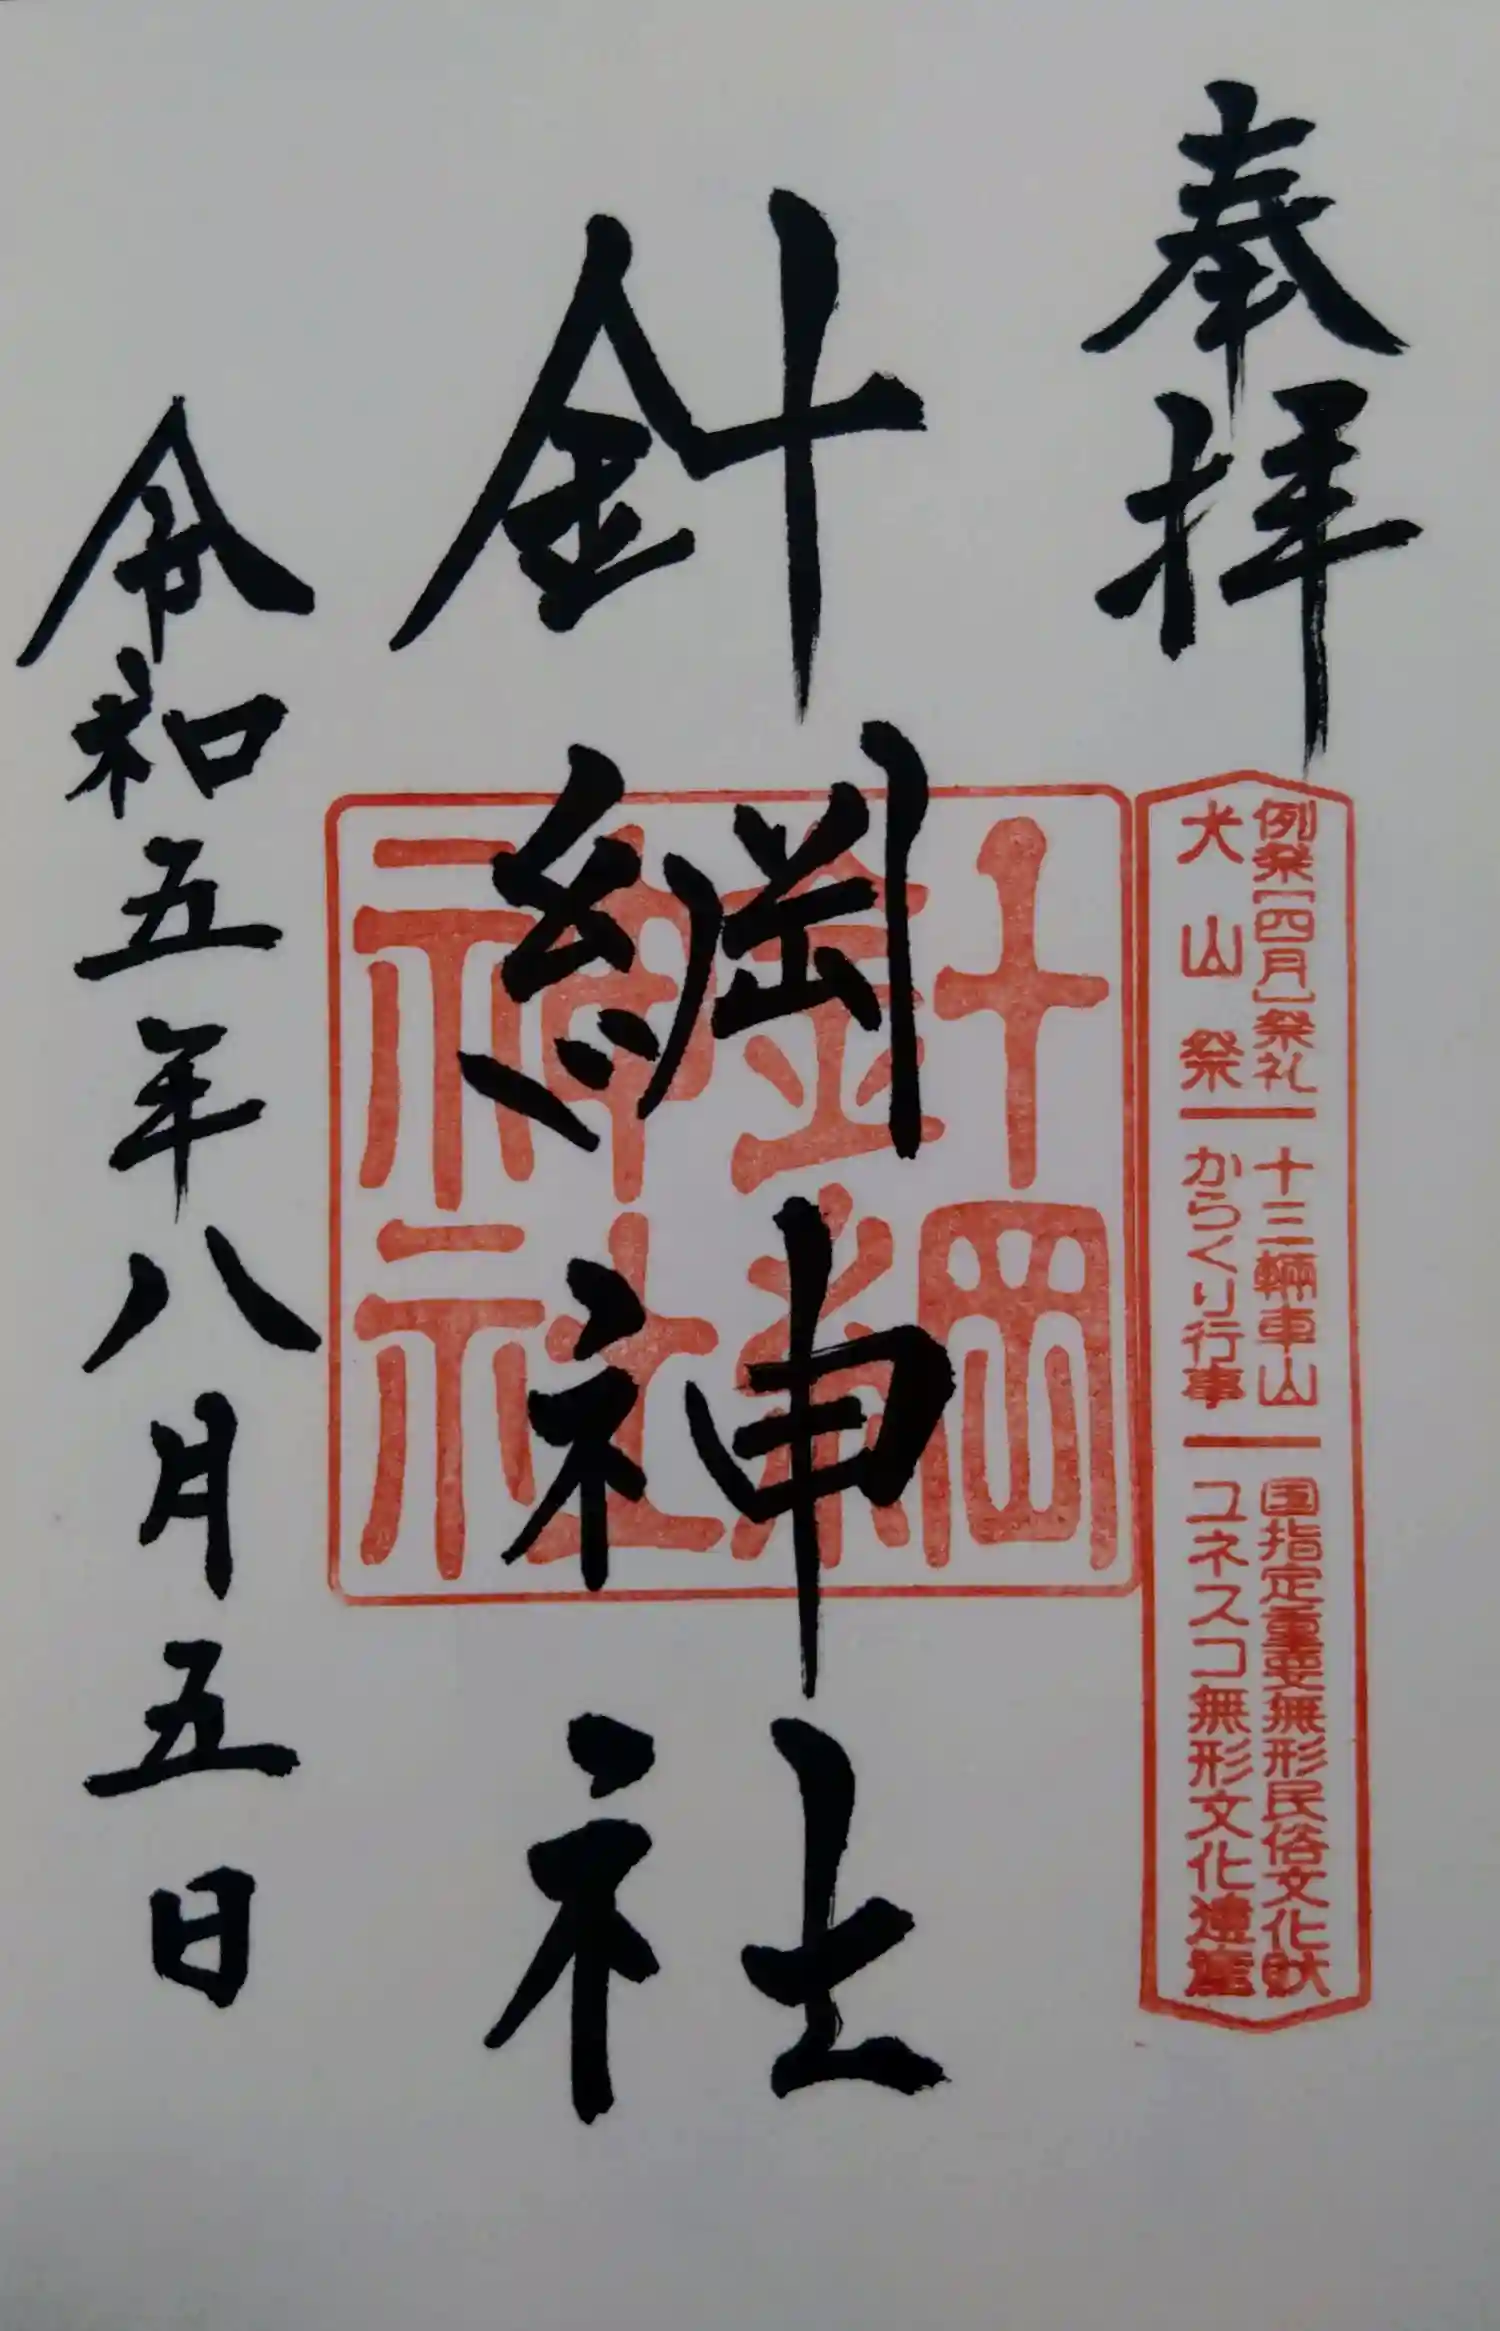 奉拝
例祭【四月】祭礼
犬山祭
十三輛車山
からくり行事
国指定重要無形民俗文化財
ユネスコ無形文化遺産
針綱神社
針綱
神社
令和五年八月五日